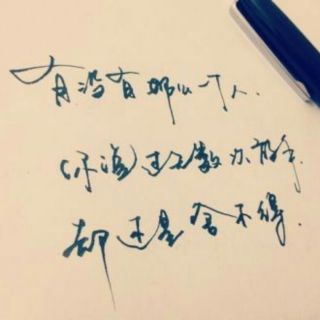 有没有那么一个人.
你说过无数次放弃.
却还是舍不得.